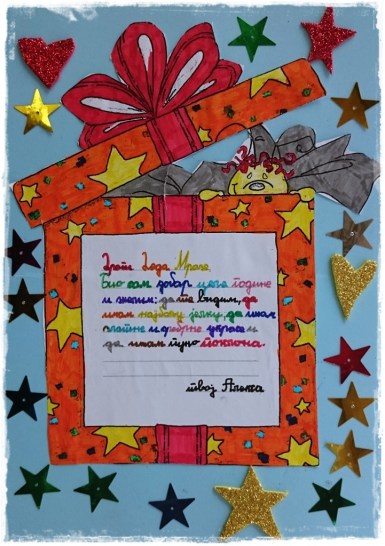 Драги Деда Мразе,
Био сам добар целе године
и желим: да те видим, да
имам најбољу јелку, да имам
златне и сребрне украсе и
да имам пуно поклона.
твој Алекса